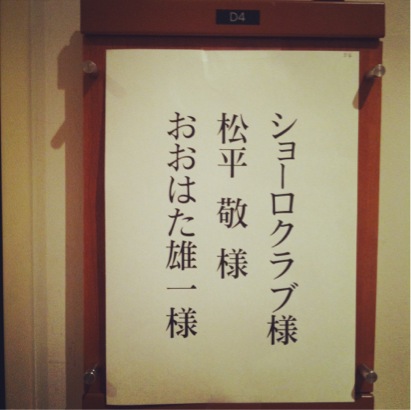 D4
ショーロクラブ様
松平 敬 様
おおはた雄一様